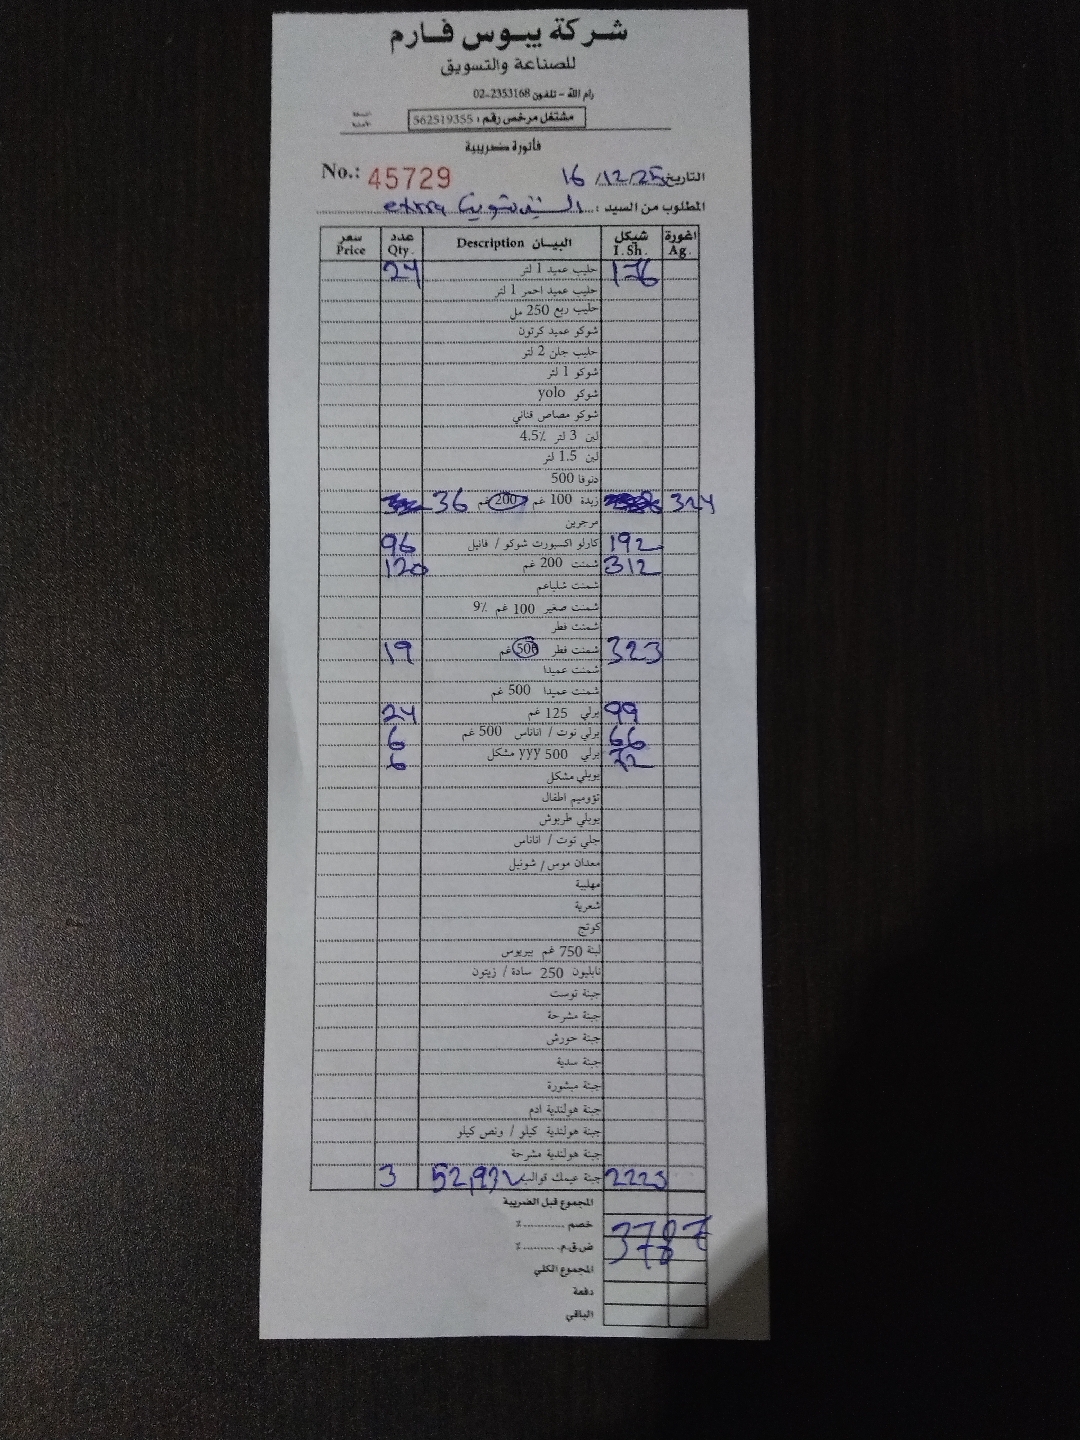 شركة يبوس فارم
للصناعة والتسويق
رام الله - تلفون 2353168-02
مشتغل مرخص رقم : 562519355
فاتورة ضريبية
No.: 45729 التاريخ 16/12/25
المطلوب من السيد : extra
سعر Price عدد Qty. البيـــان Description شيكل I.Sh. اغورة Ag.
24 حليب عميد 1 لتر 176
حليب عميد احمر 1 لتر
حليب ربع 250 مل
شوكو عميد كرتون
حليب جلن 2 لتر
شوكو 1 لتر
شوكو yolo
شوكو مصاص قناني
لبن 3 لتر 4.5٪
لبن 1.5 لتر
دنوفا 500
36 زبدة 100 غم 200 غم 324
مرجرين
96 كارلو اكسبورت شوكو / فانيل 192
120 شمنت 200 غم 312
شمنت شلباعم
شمنت صغير 100 غم 9٪
شمنت فطر
19 شمنت فطر 500 غم 323
شمنت عميدا
شمنت عميدا 500 غم
24 برلي 125 غم 99
6 برلي توت / اناناس 500 غم 66
6 برلي yyy 500 مشكل 72
يوبلي مشكل
تؤوميم اطفال
يوبلي طربوش
جلي توت / اناناس
معدان موس / شونيل
مهلبية
شعرية
كوتج
لبنة 750 غم بيريوس
نابليون 250 سادة / زيتون
جبنة توست
جبنة مشرحة
جبنة حورش
جبنة سدية
جبنة مبشورة
جبنة هولندية ادم
جبنة هولندية كيلو / ونص كيلو
جبنة هولندية مشرحة
3 جبنة عيمك قوالب 52,932 2223
المجموع قبل الضريبة
خصم ............٪ 3787
ض.ق.م. ..........٪ 3787
المجموع الكلي
دفعة
الباقي